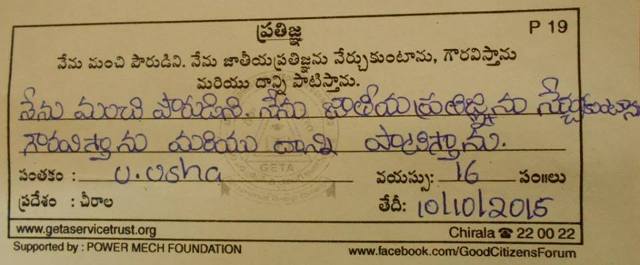 ప్రతిజ్ఞ P 19
నేను మంచి పౌరుడిని. నేను జాతీయప్రతిజ్ఞను నేర్చుకుంటాను, గౌరవిస్తాను
మరియు దాన్ని పాటిస్తాను.
నేను మంచి పౌరుడిని నేను జాతీయ ప్రతిజ్ఞను నేర్చుకుంటాను
గౌరవిస్తాను మరియు దాన్ని పాటిస్తాను.
సంతకం : U.Usha వయస్సు: 16 సం॥లు
ప్రదేశం : చీరాల తేదీ: 10/10/2015
www.getaservicetrust.org Chirala ☎ 22 00 22
Supported by : POWER MECH FOUNDATION www.facebook.com/GoodCitizensForum
GETA